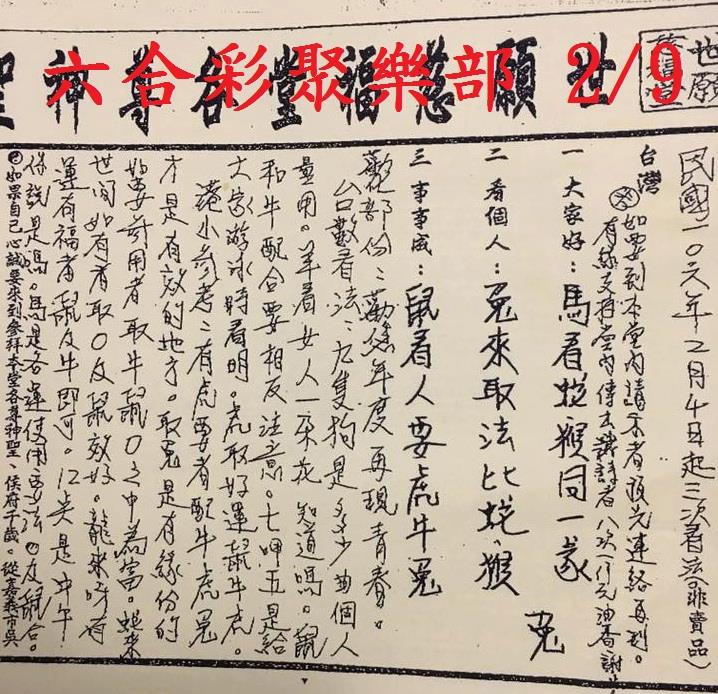 六合彩聚樂部 2/9
世願慈福堂各尊神聖
世願
民國一〇六年2月4日起三次看法(非賣品)
台灣 如要到本堂內請示者預先連絡再到。
一 大家好:馬看蛇猴同一家
二 看個人:兔來取法比蛇、猴 兔
三 事事成:鼠看人要虎牛兔
觀部份:勸您年度再現青春。
台數看法:九隻狗是多少由個人
量用。羊看女人一朵花 知道嗎。鼠
和牛配合要相反注意。七呷五是給
大家游泳時看明。虎取好運鼠牛虎。
港小參考:有虎要者配牛虎兔
才是有效的地方。取兔是有緣份的
如要前用者取牛鼠0之中為富。
世間如有者取0反鼠效好。龍來呀有
運有福者鼠反牛即可。
你說是嗎。馬是各運使用要法
如果自己心誠要來到參拜本堂各尊神聖、侯府千歲。從嘉義市吳